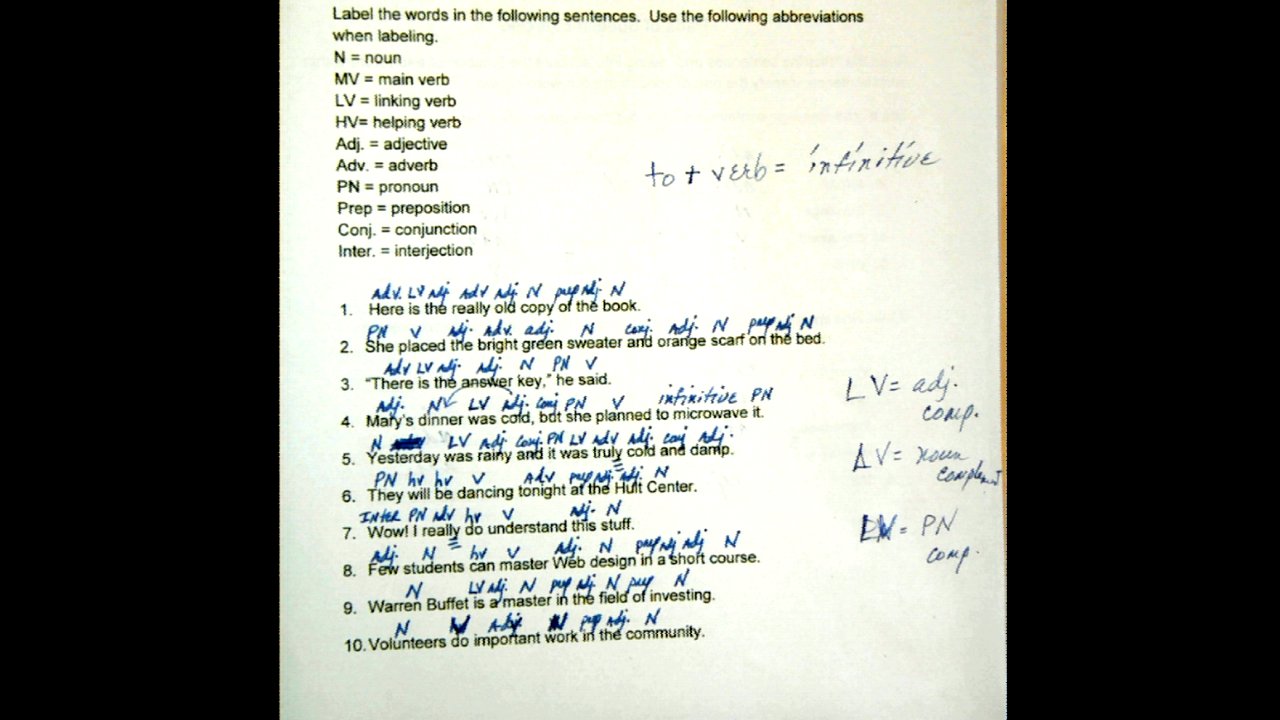 Label the words in the following sentences. Use the following abbreviations
when labeling.
N = noun
MV = main verb
LV = linking verb
HV= helping verb
Adj. = adjective
Adv. = adverb
PN = pronoun
to + verb = infinitive
Prep = preposition
Conj. = conjunction
Inter. = interjection
Adv. LV Adj. Adv Adj. N prep Adj. N
1. Here is the really old copy of the book.
PN V Adj. Adv. adj. N conj. Adj. N prep Adj N
2. She placed the bright green sweater and orange scarf on the bed.
Adv LV Adj. Adj. N PN V
3. "There is the answer key," he said.
Adj. N LV Adj. Conj PN V infinitive PN
4. Mary's dinner was cold, but she planned to microwave it.
LV = adj.
comp.
N LV Adj Conj. PN LV Adv Adj. conj Adj.
5. Yesterday was rainy and it was truly cold and damp.
LV = noun
PN hv hv V Adv prep Adj Adj. N
6. They will be dancing tonight at the Hult Center.
Inter PN Adv hv V Adj. N
7. Wow! I really do understand this stuff.
LV = PN
comp.
Adj. N hv V Adj. N prep Adj Adj N
8. Few students can master Web design in a short course.
N LV Adj. N prep Adj. N prep N
9. Warren Buffet is a master in the field of investing.
N V Adj. N prep Adj. N
10. Volunteers do important work in the community.